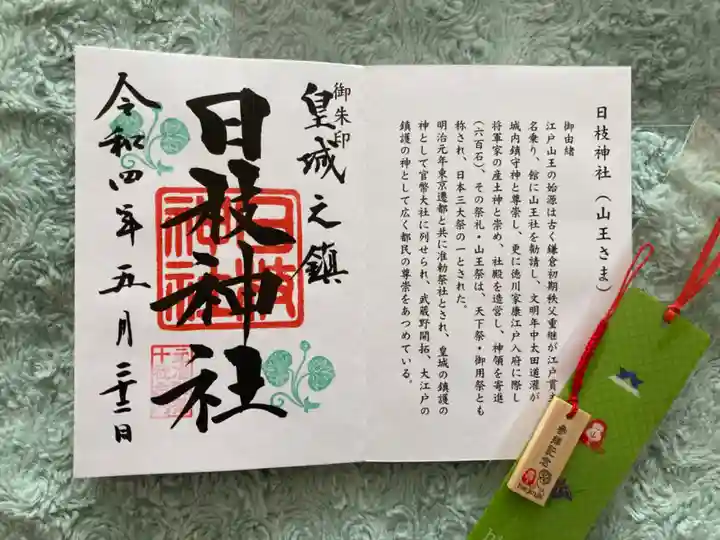 日枝神社(山王さま)
御由緒
江戸山王の始源は古く鎌倉初期秩父重継が江戸貫主
名乗り、館に山王社を勧請し、文明年中太田道灌が
城内鎮守神と尊崇し、更に徳川家康江戸入府に際し
将軍家の産土神と崇め、社殿を造営し、神領を寄進
(六百石)、その祭礼・山王祭は、天下祭・御用祭とも
称され、日本三大祭の一とされた。
明治元年東京遷都と共に准勅祭社とされ、皇城の鎮護の
神として官幣大社に列せられ、武蔵野開拓、大江戸の
鎮護の神として広く都民の尊崇をあつめている。
御朱印
皇城之鎮
日枝神社
日枝神社
令和四年五月二十二日
参拝記念